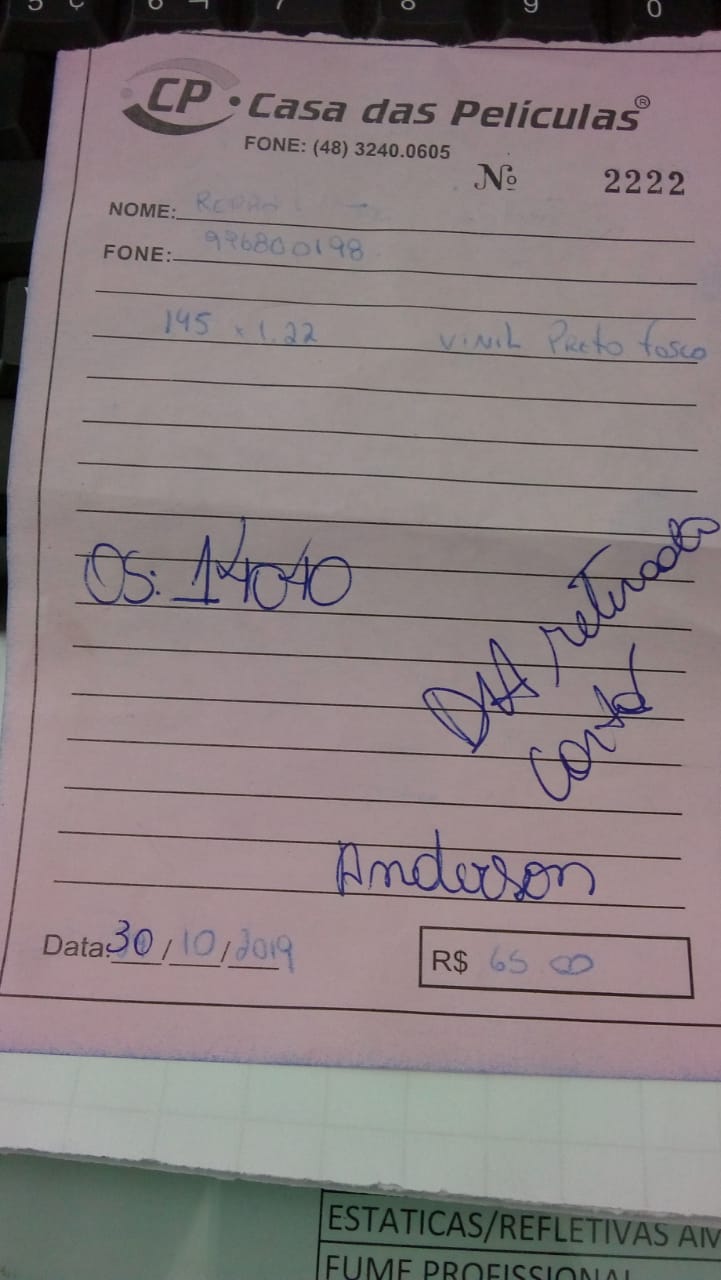 5 6 7 8 9 0
CP • Casa das Películas ®
FONE: (48) 3240.0605
Nº 2222
NOME:
FONE: 996800198
145 x 1.22 VINIL Preto fosco
OS: 14040
retirado
Anderson
Data: 30/10/2019
R$ 65 00
ESTATICAS/REFLETIVAS AM
FUME PROFISSIONAL